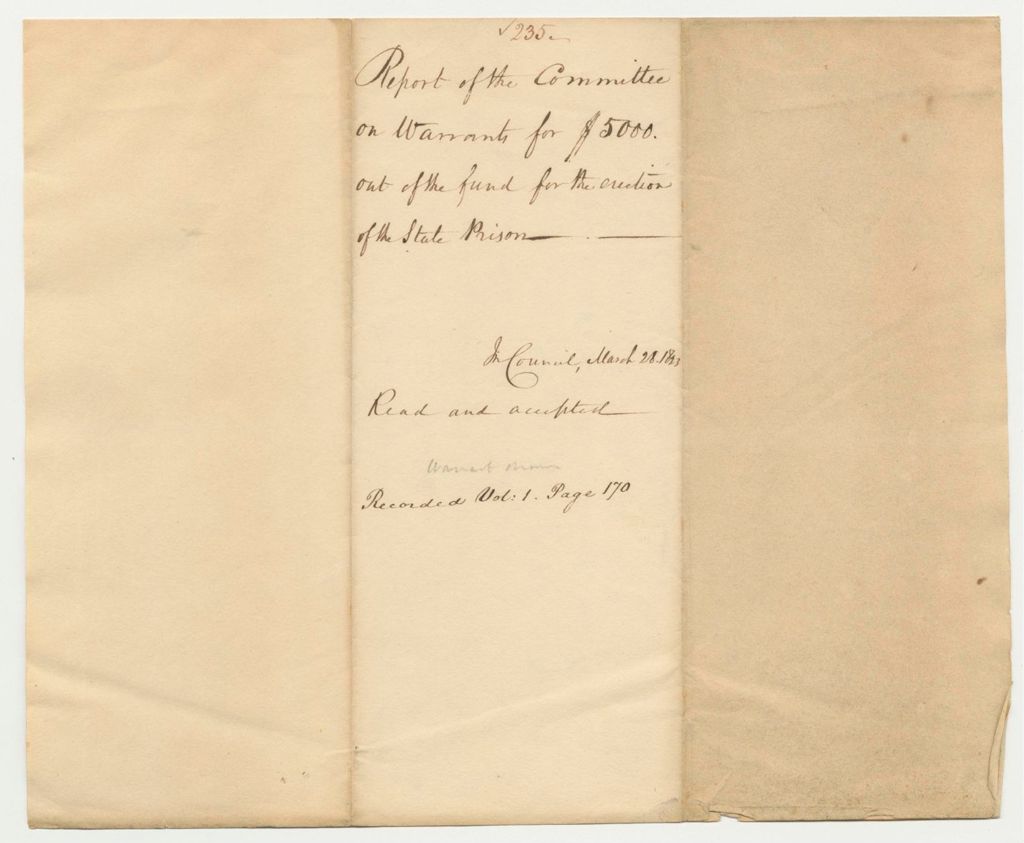 235.
Report of the Committee
on Warrants for $5000.
out of the fund for the erection
of the State Prison
In Council, March 28. 1823
Read and accepted
Warrant drawn
Recorded Vol: 1. Page 170